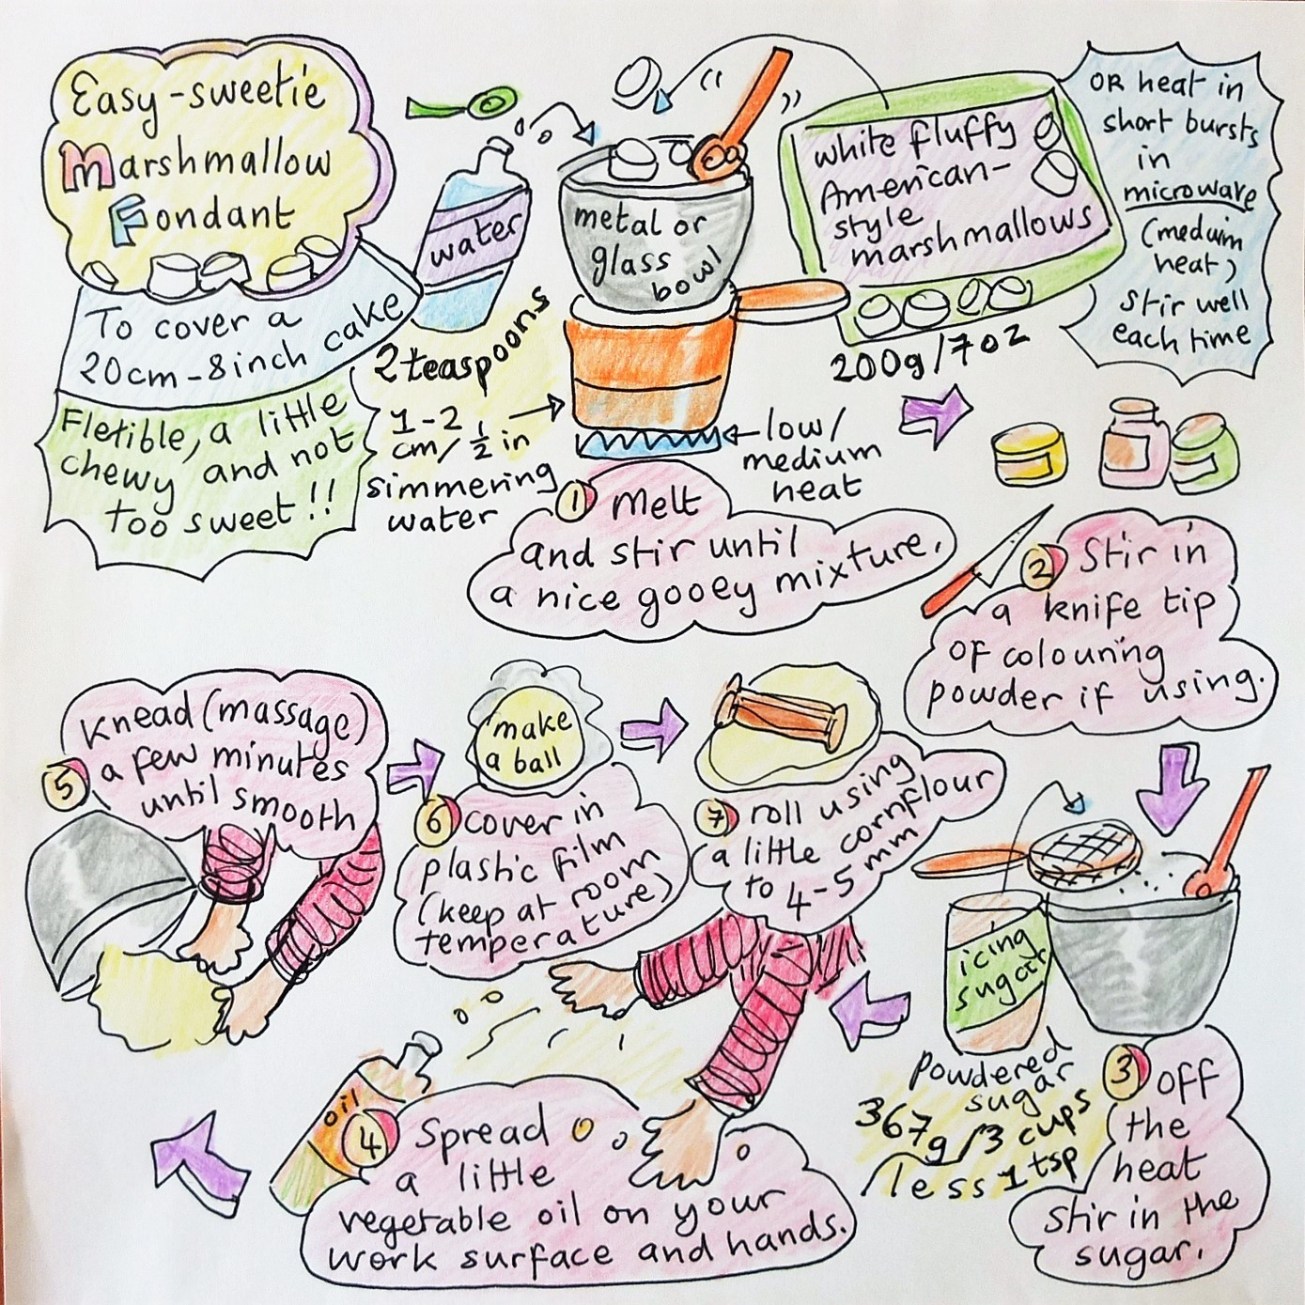 Easy-sweetie
Marshmallow
Fondant
To cover a
20cm-8inch cake
Fletible, a little
chewy and not
too sweet!!
water
2 teaspoons
metal or
glass
bowl
white fluffy
American-
style
marshmallows
200g/7oz
OR heat in
short bursts
in
microwave
(medium
heat)
stir well
each time
1-2
cm/ 1/2 in
simmering
water
low/
medium
heat
1 Melt
and stir until
a nice gooey mixture.
2 Stir in
a knife tip
of colouring
powder if using.
icing
sugar
powdered
sugar
367g/3 cups
/less 1 tsp
3 off
the
heat
stir in the
sugar.
oil
4 Spread
a little
vegetable oil on your
work surface and hands.
Knead (massage)
5 a few minutes
until smooth
make
a ball
6 cover in
plastic film
(keep at room
temperature)
7 roll using
a little cornflour
to 4-5mm